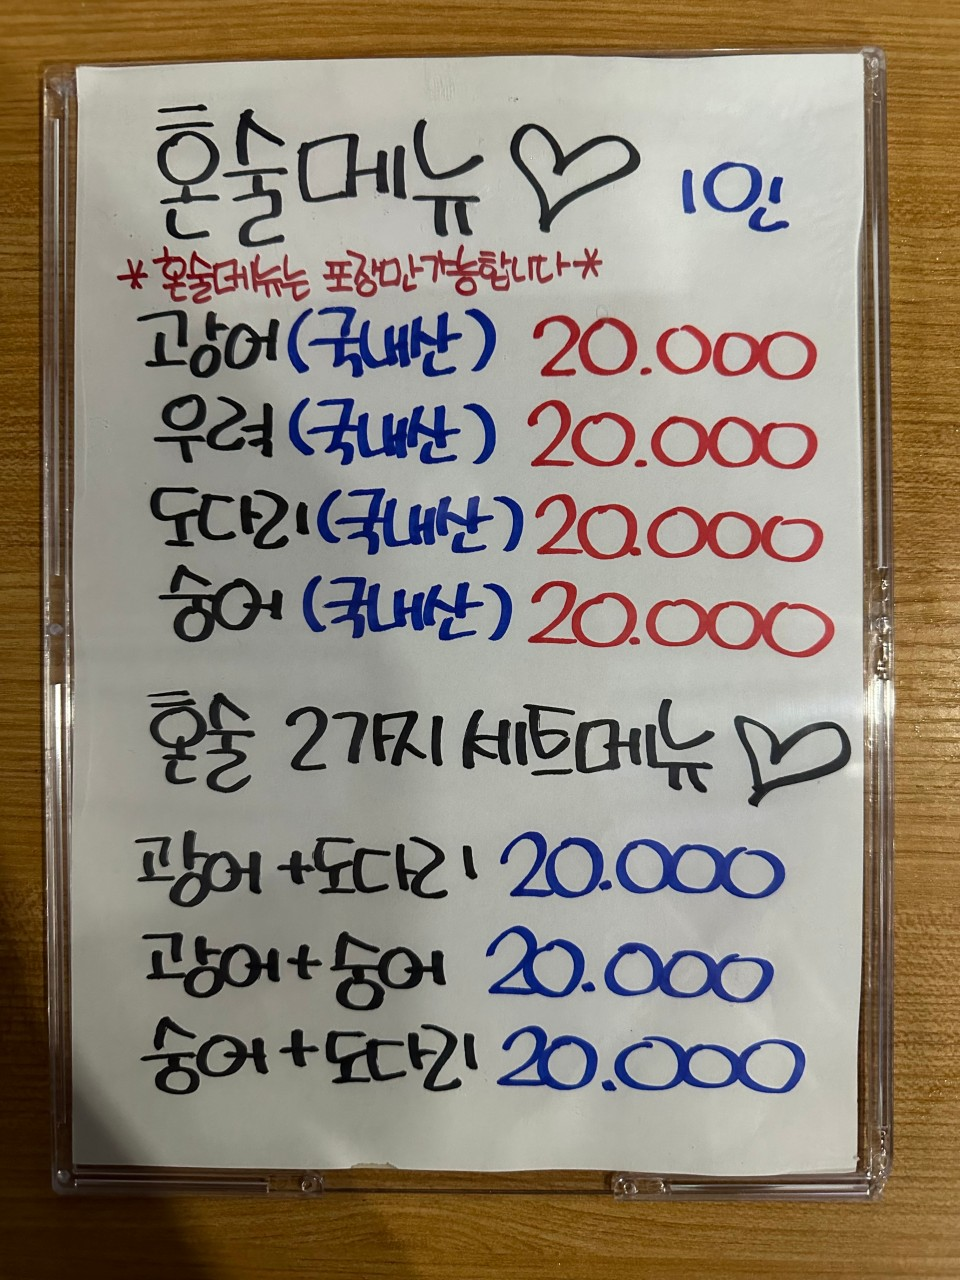 혼술메뉴♡ 1인
*혼술메뉴는 포장만가능합니다*
광어(국내산) 20.000
우럭(국내산) 20.000
도다리(국내산) 20.000
숭어(국내산) 20.000
혼술 2가지 세트메뉴♡
광어+도다리 20.000
광어+숭어 20.000
숭어+도다리 20.000